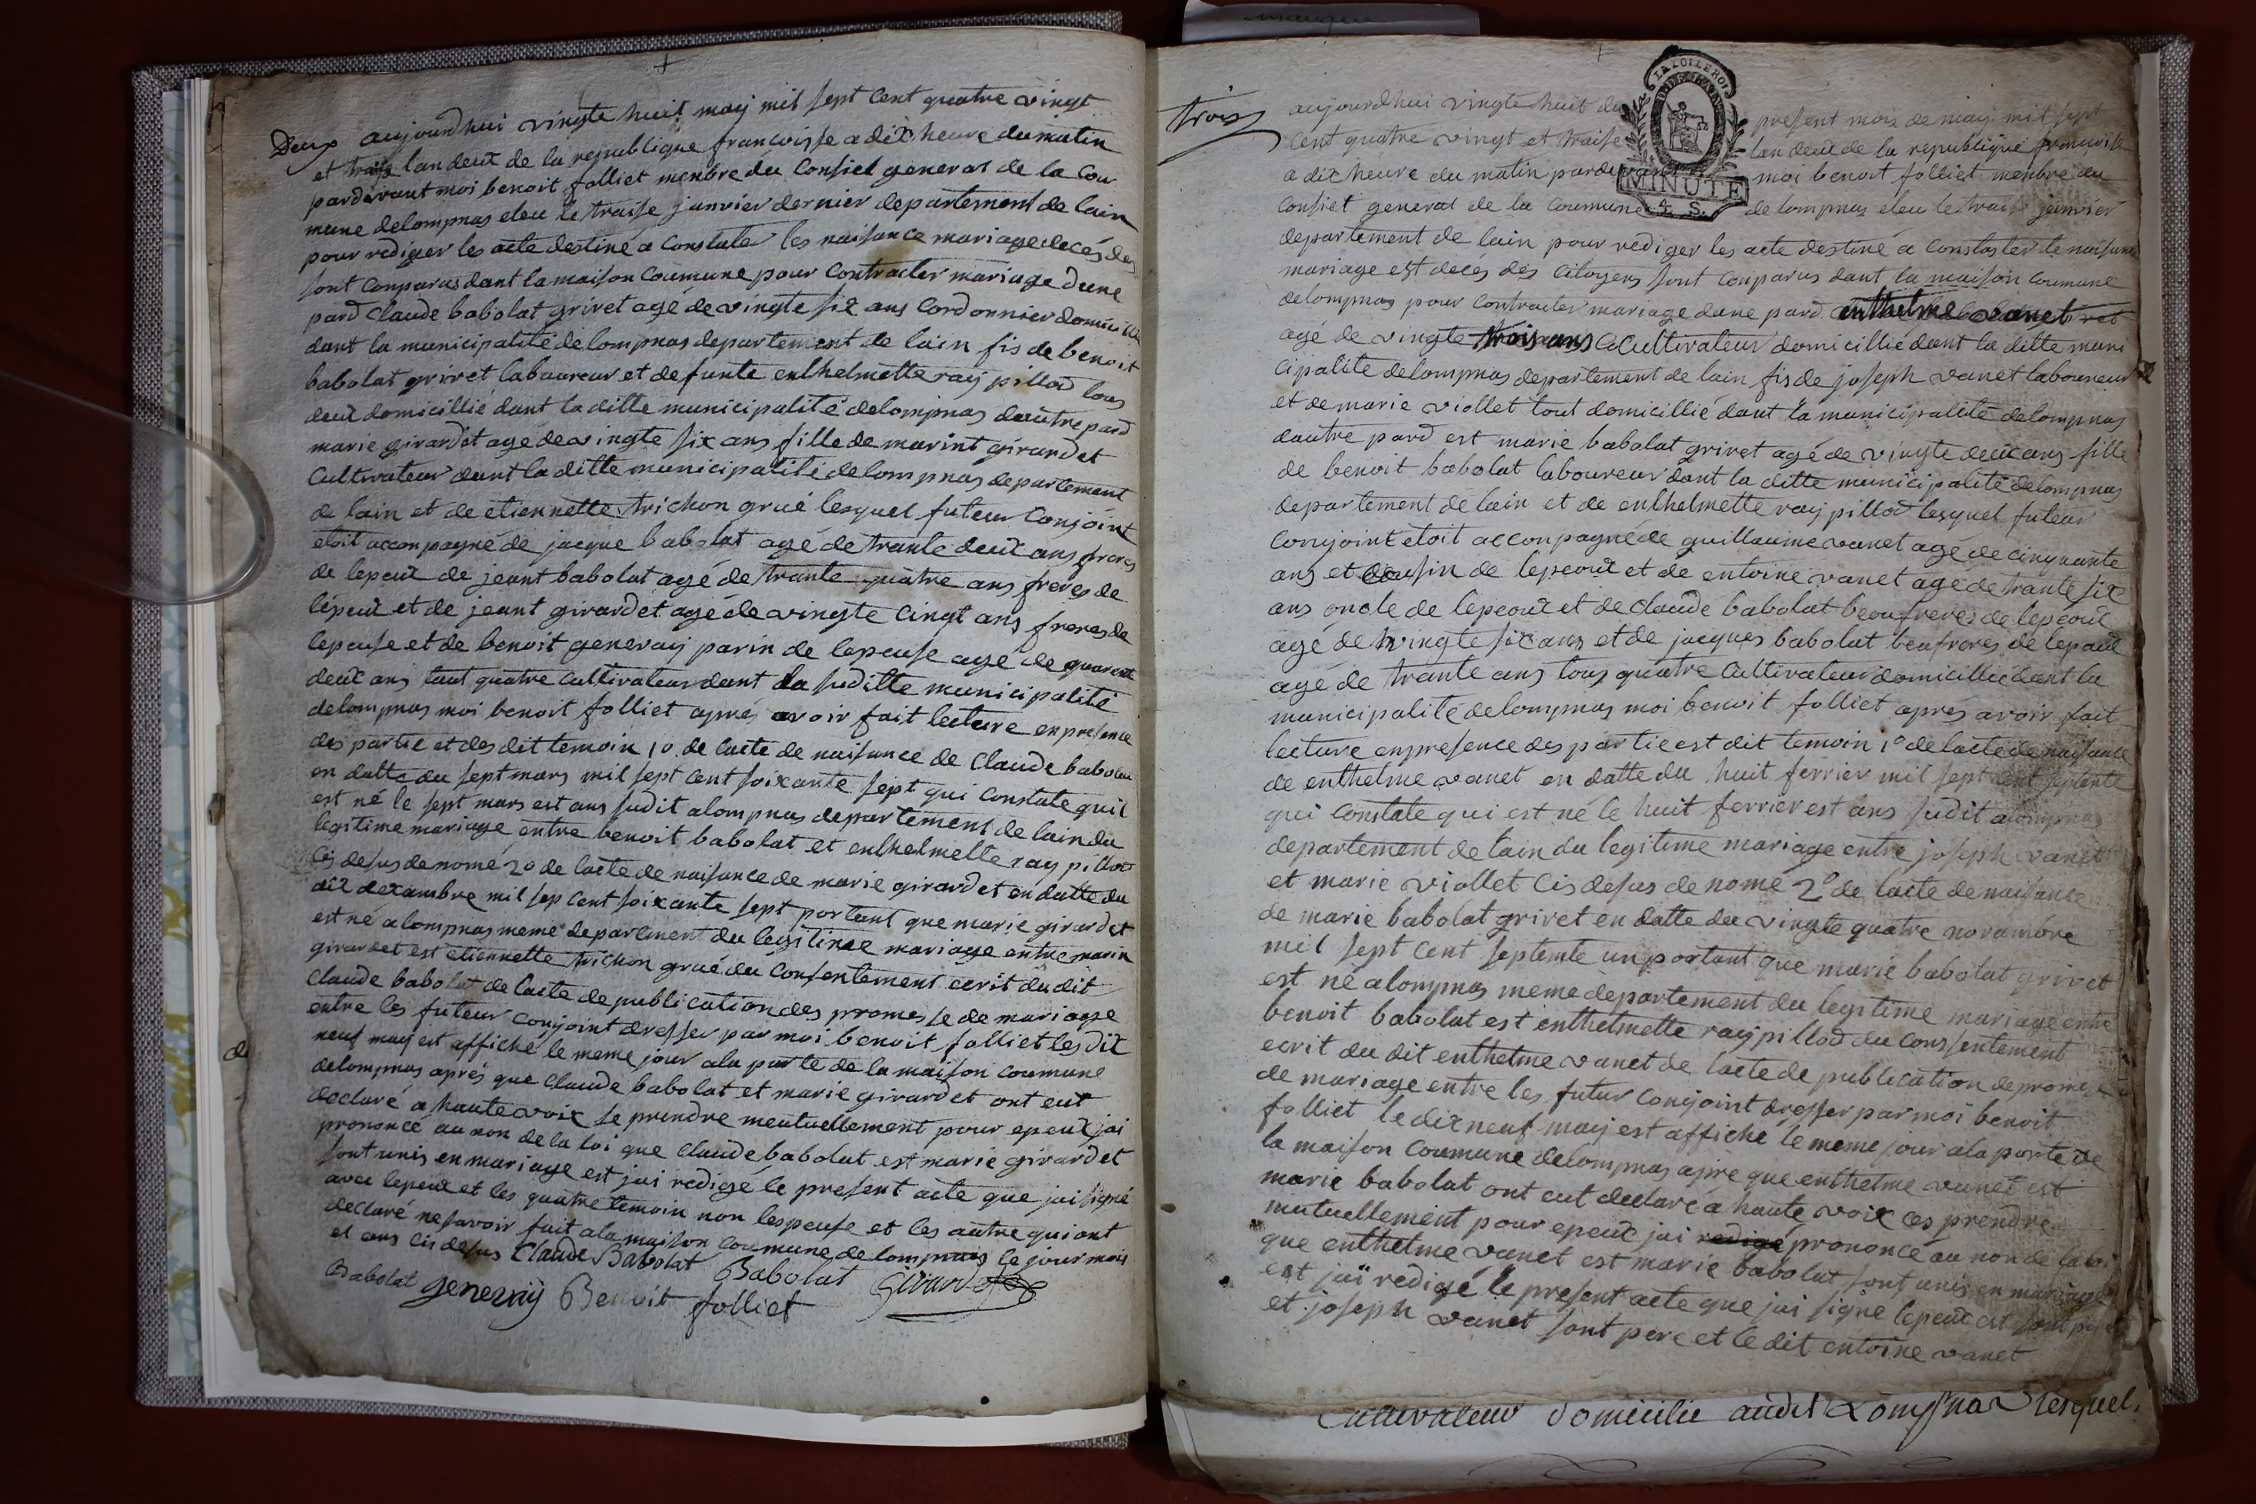 Deux aujourdhui vingte huit maij mil sept cent quatre vingt
et traise lan deux de la republique francoisse a dix heure du matin
pardevant moi benoit folliet menbre du Consiel general de la Cou
mune delompnas eleu le traise janvier dernier departement de lain
pour rediger les acte destiné a Constater les naisance mariage decés des
sont conparus dant la maison coumune pour contracter mariage dune
pard Claude babolat grivet agé de vingte six ans Cordonnier domicillié
dant la municipalité delompnas departement de lain fis de benoit
babolat grivet laboureur et defunte enthelmette raij pillod tous
deux domicillié dant la ditte municipalité delompnas dautre pard
marie girardet agé de vingte six ans fille de marint girardet
Cultivateur dant la ditte municipalité delompnas departement
de lain et de etiennette trichon grué lesquel futeur Conjoint
etoit acconpagné de jacque babolat agé de trante deux ans freres
de lepeux de jeant babolat agé de trante quatre ans freres de
lépeux et de jeant girardet agé de vingte cinqt ans freres de
lepeuse et de benoit generaij parin de lepeuse agé de quarente
deux ans tout quatre cultivateur dant la suditte municipalité
delompnas moi benoit folliet aprés avoir fait lecture en presence
des partie et des dit temoin 1o de lacte de naisance de Claude babolat
en datte du sept mars mil sept cent soixante sept qui constate quil
est né le sept mars est ans sudit a lompnas departement de lain du
legitime mariage entre benoit babolat et enthelmette raij pillod
cis desus de nomé 2o de lacte de naisance de marie girardet en datte du
dix dexambre mil sep cent soixante sept portant que marie girardet
est né a lompnas meme departement du legitimee mariage entre marin
girardet est etiennette trichon grué du Consentement écrit du dit
Claude babolat de lacte de publication des promesse de mariage
entre les futeur conjoint dresser par moi benoit folliet les dix
neuf maij est affiché le meme jour ala porte de la maison coumune
delompnas aprés que Claude babolat et marie girardet ont eut
declaré a haute voix se prendre meutuellement pour epeux jai
prononcé au non de la loi que Claude babolat est marie girardet
sont unis en mariage est jai redigé le present acte que jai signé
avec lepeux et les quatre temoin non lespeuse et les autre qui ont
declaré ne savoir fait ala maison coumune de lompnas le jour mois
et ans cis desus Claude Babolat Babolat Girardet
Babolat generaij Benoit folliet
trois aujourdhui vingte huit du present mois de maij mil sept
cent quatre vingt et traise lan deux de la republique francoise
LA LOI LE ROI
a dix heure du matin pardevant moi benoit folliet menbre du
MINUTE
Consiel general de la Coumune delompnas eleu le traise janvier
4. S.
departement de lain pour rediger les acte destiné a constaster le naisance
mariage est decés des citoyens sont conparus dant la maison coumune
delompnas pour contracter mariage dune pard enthelme vanet
agé de vingte trois ans Cultivateur domicillié dant la ditte muni
cipalité delompnas departement de lain fis de joseph vanet laboureur
et de marie viollet tout domicillié dant la municipalité delompnas
dautre pard est marie babolat grivet agé de vingte deux ans fille
de benoit babolat laboureur dant la ditte municipalité delompnas
departement de lain et de enthelmette raij pillod lesquel futeur
conjoint étoit acconpagné de guillaume vanet agé de cinquante
ans et cousin de lepeoux et de entoine vanet agé de trante six
ans oncle de lepeoux et de Claude babolat beaufreres de lepeoux
agé de vingte six ans et de jacques babolat beufreres de lepeux
agé de trante ans tous quatre Cultivateur domicillié dant la
municipalité delompnas moi benoit folliet aprés avoir fait
lecture en presence des partie est dit temoin 1o de lacte de naisance
de enthelme vanet en datte du huit ferrier mil sept cent septante
qui constate qui est né le huit ferrier est ans sudit a lompnas
departement de lain du legitime mariage entre joseph vanet
et marie viollet cis desus de nomé 2o de lacte de naisance
de marie babolat grivet en datte du vingte quatre novambre
mil sept cent septente un portant que marie babolat grivet
est né a lompnas meme departement du legitime mariage entre
benoit babolat est enthelmette raij pillod du consentement
ecrit du dit enthelme vanet de lacte de publication de promesse
de mariage entre les futur conjoint dresser par moi benoit
folliet le dix neuf maij est affiché le meme jour ala porte de
la maison coumune delompnas apre que enthelme vanet est
marie babolat ont eut declaré a haute voix ces prendre
mutuellement pour epeux jai redigé prononcé au non de la loi
que enthelme vanet est marie babolat sont unis en mariage
est jaï redigé le present acte que jai signé lepeux est
et joseph vanet sont pere et le dit entoine vanet
Cultivateur domicilié audit Lompnas lesquel